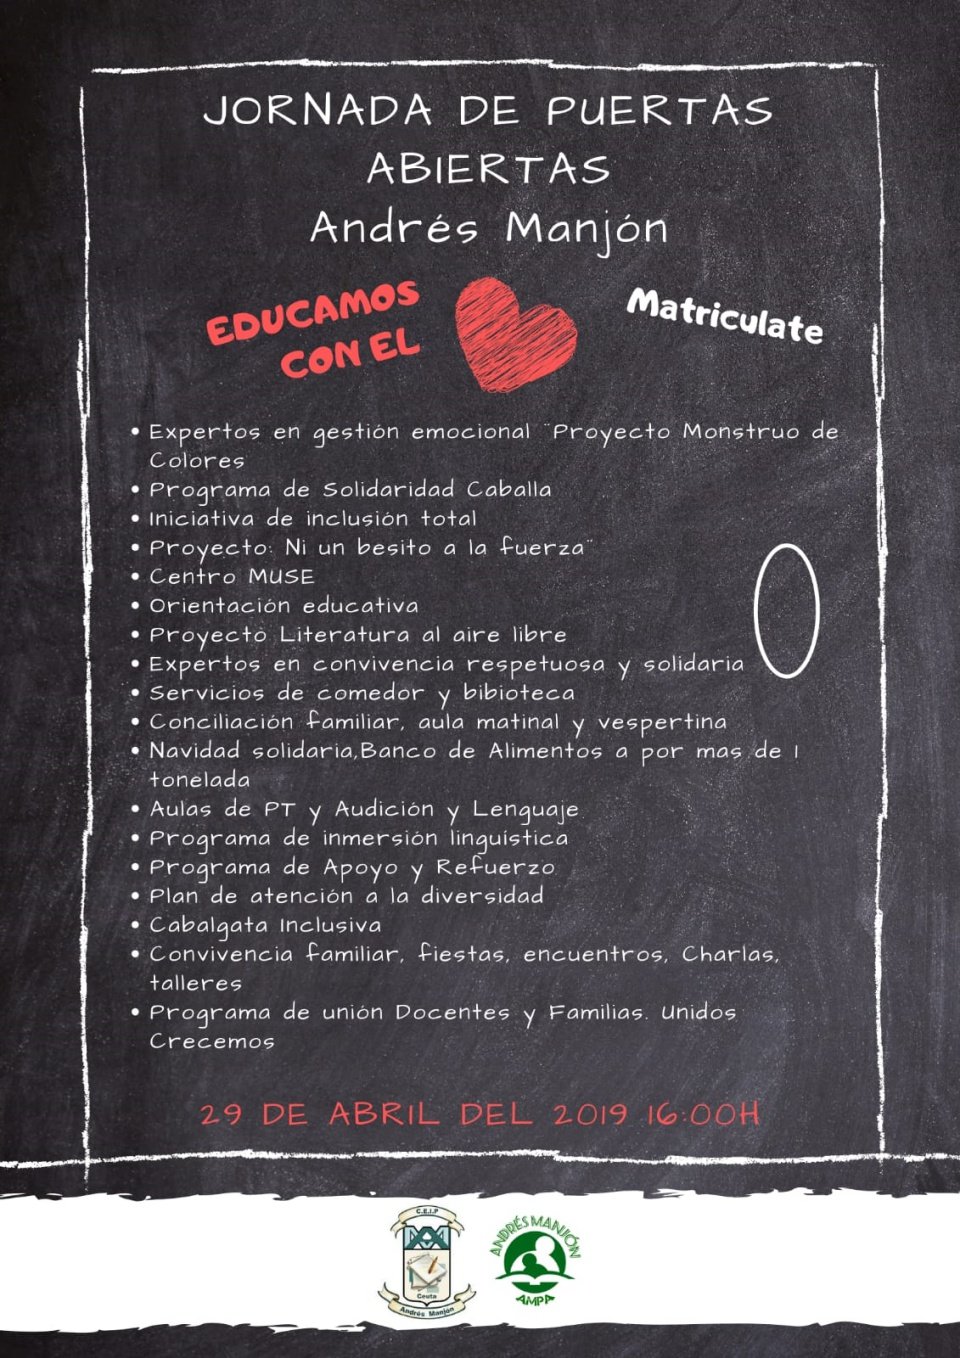 JORNADA DE PUERTAS
ABIERTAS
Andrés Manjón
EDUCAMOS
CON EL
Matriculate
• Expertos en gestión emocional ¨Proyecto Monstruo de
Colores
• Programa de Solidaridad Caballa
• Iniciativa de inclusión total
• Proyecto: Ni un besito a la fuerza¨
• Centro MUSE
• Orientación educativa
• Proyecto Literatura al aire libre
• Expertos en convivencia respetuosa y solidaria
• Servicios de comedor y bibioteca
• Conciliación familiar, aula matinal y vespertina
• Navidad solidaria,Banco de Alimentos a por mas de 1
tonelada
• Aulas de PT y Audición y Lenguaje
• Programa de inmersión linguistica
• Programa de Apoyo y Refuerzo
• Plan de atención a la diversidad
• Cabalgata Inclusiva
• Convivencia familiar, fiestas, encuentros, Charlas,
talleres
• Programa de unión Docentes y Familias. Unidos
Crecemos
29 DE ABRIL DEL 2019 16:00H
C.E.I.P
Ceuta
Andrés Manjón
ANDRÉS MANJÓN
AMPA